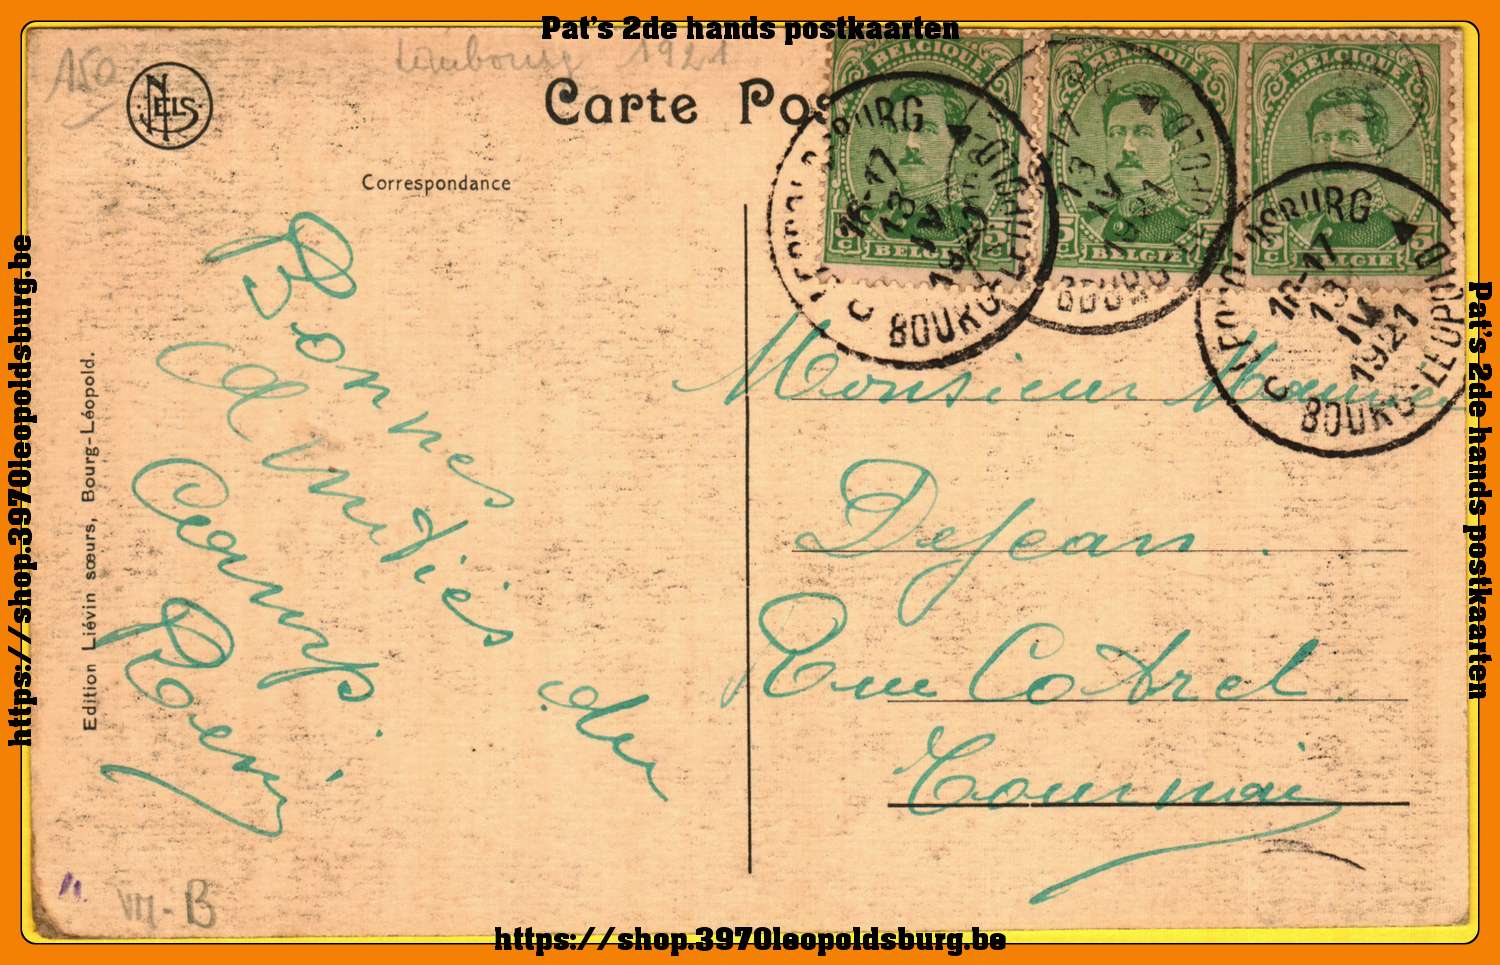 Pat's 2de hands postkaarten
150
Limbourg 1921
NELS
Carte Pos
Correspondance
BELGIQUE
BELGIQUE
BELGIQUE
5c BELGIE 5c
5c BELGIE 5c
5c BELGIE 5c
LEOPOLDSBURG
16-17
13
IV
1921
C BOURG-LEOPOLD
17
13
IV
1921
BOURG-LEOPOLD
LEOPOLDSBURG
16-17
13
IV
1921
C BOURG-LEOPOLD
Bonnes
Amitiés du
Camp
Rémi
Monsieur Maurice
Dejean.
Rue Cottrel.
Tournai
Edition Liévin sœurs, Bourg-Léopold.
VII-B
https://shop.3970leopoldsburg.be
Pat's 2de hands postkaarten
https://shop.3970leopoldsburg.be